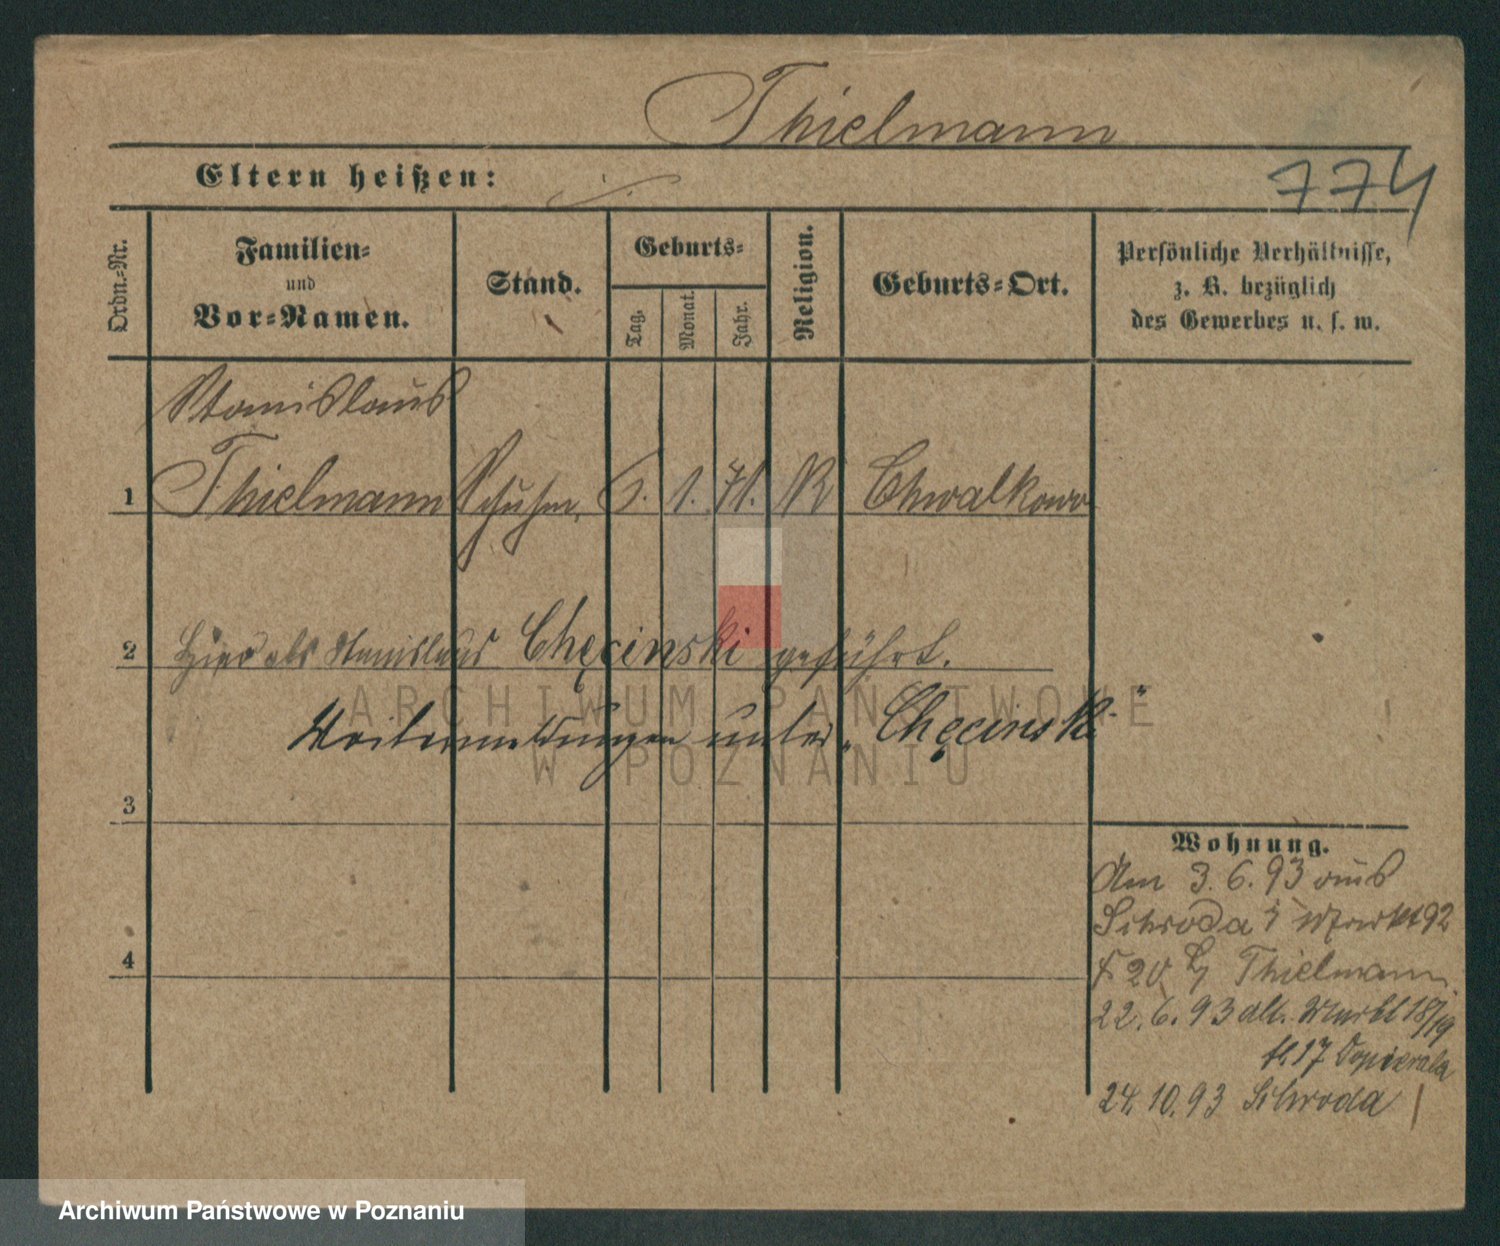 Thielmann
Eltern heißen: ·/.
774
Ordn.-Nr.
Familien-
und
Vor-Namen.
Stand.
Geburts-
Tag.
Monat.
Jahr.
Religion.
Geburts-Ort.
Persönliche Verhältnisse,
z. B. bezüglich
des Gewerbes u. s. w.
Stanislaus
1 Thielmann Schuhm. 5. 1. 71. K Chwalkowo
2 Hier als Stanislaus Chęcinski geführt.
Weitermeldungen unter „Chęcinski“
3
4
Wohnung.
Am 3.6.93 aus
Schroda Markt 92
20 Thielmann.
22.6.93 alt. Markt 18/19
17 Dopierala
24.10.93 Schroda
ARCHIWUM PAŃSTWOWE
W POZNANIU
Archiwum Państwowe w Poznaniu